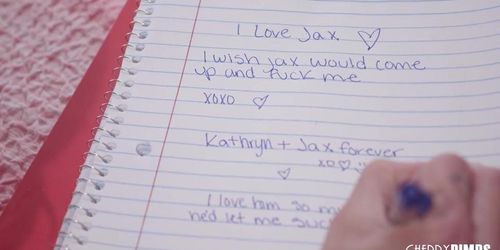 I Love Jax ♡
I wish jax would come
up and fuck me
xoxo ♡
Kathryn + Jax forever
xo♡
♡
I love him so
he'd let me
CHERRYPIMPS